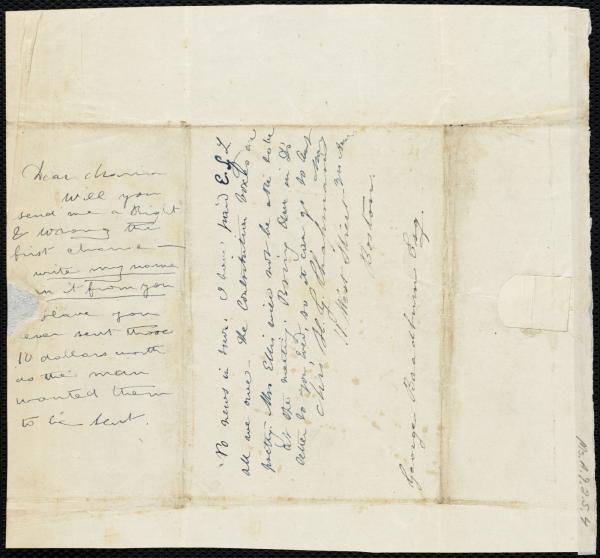 Dear Maria
Will you
send me a Right
& Wrong the
first chance —
write my name
in it from you
Have you
ever sent those
10 dollars worth
as the man
wanted them
to be sent.
No news is ours. I have paid E.G.L
all we owe — The Contribution boxes are
pretty. Mrs Ellis will not be able to be
at the meeting.
letter to you, so it can go to
Mrs. H. G. Chapman
11 West Street
Boston.
George Bradburn Esq.
Ms.A.9.2.5.4